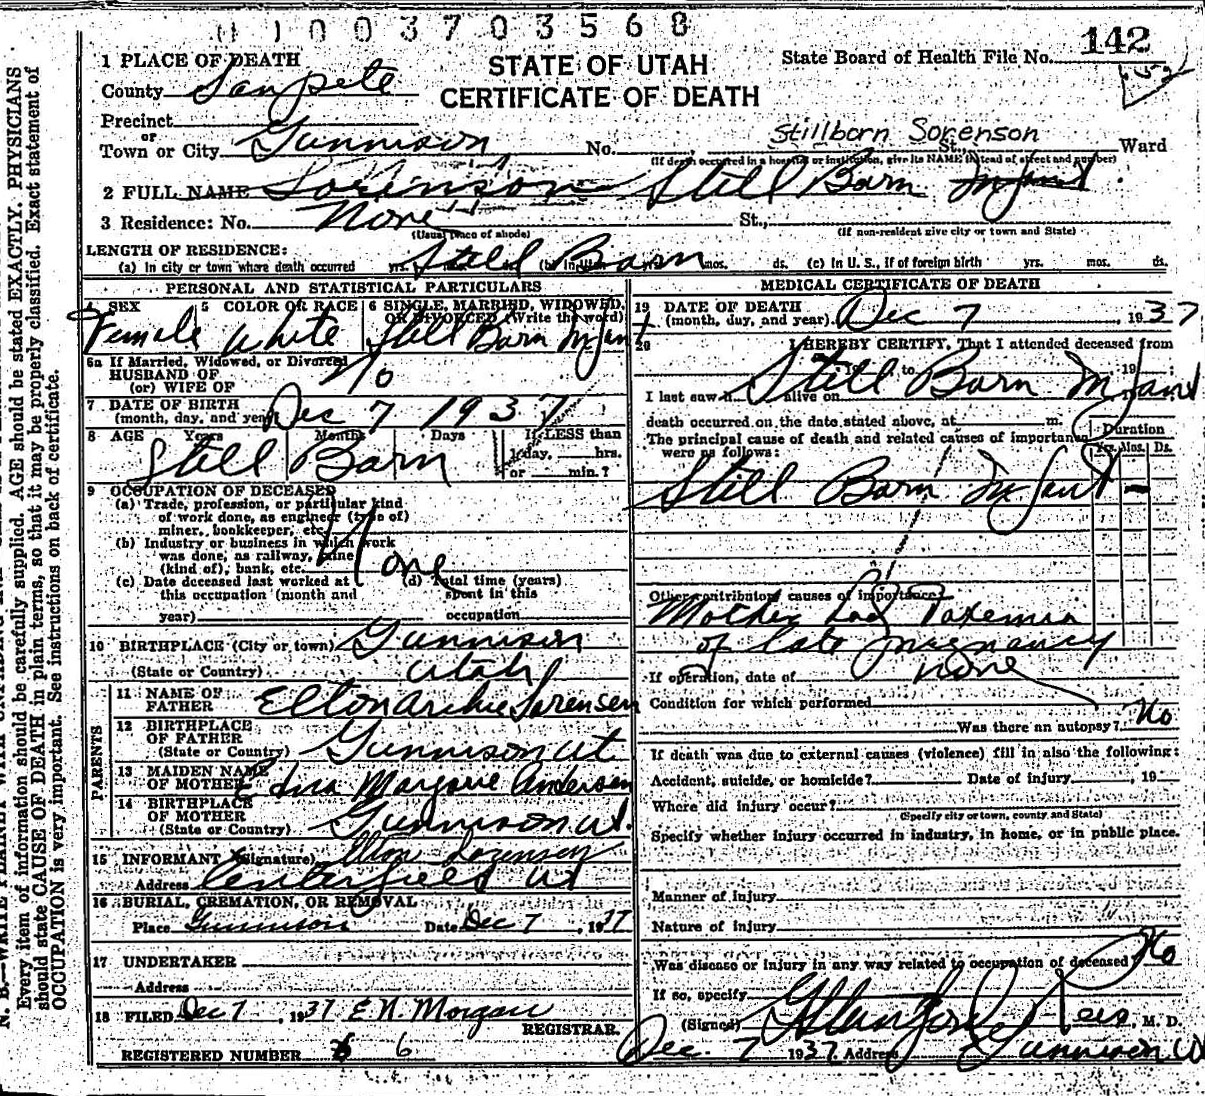 0100370356 8
142
STATE OF UTAH
CERTIFICATE OF DEATH
State Board of Health File No.
1 PLACE OF DEATH
County Sanpete
Precinct
or
Town or City Gunnison No. St., Ward
Stillborn Sorenson
(If death occurred in a hospital or institution, give its NAME instead of street and number)
2 FULL NAME Sorenson Still Barn Infant
3 Residence: No. None St.,
(Usual place of abode) (If non-resident give city or town and State)
LENGTH OF RESIDENCE: Still Barn
(a) In city or town where death occurred yrs. mos. ds. (c) In U. S., if of foreign birth yrs. mos. ds.
PERSONAL AND STATISTICAL PARTICULARS
4 SEX 5 COLOR OR RACE 6 SINGLE, MARRIED, WIDOWED, OR DIVORCED (Write the word)
Female White Still Barn Infant
6a If Married, Widowed, or Divorced
HUSBAND OF
(or) WIFE OF
No
7 DATE OF BIRTH
(month, day, and year) Dec 7 1937
8 AGE Years Months Days If LESS than
1 day, hrs.
or min.?
Still Barn
9 OCCUPATION OF DECEASED
(a) Trade, profession, or particular kind
of work done, as engineer (type of)
miner, bookkeeper, etc.
(b) Industry or business in which work
was done, as railway, mine
(kind of), bank, etc.
None
(c) Date deceased last worked at (d) Total time (years)
this occupation (month and spent in this
year) occupation
10 BIRTHPLACE (City or town) Gunnison
(State or Country) Utah
PARENTS
11 NAME OF
FATHER Elton Archie Sorensen
12 BIRTHPLACE
OF FATHER
(State or Country) Gunnison Ut
13 MAIDEN NAME
OF MOTHER Edna Margane Andersen
14 BIRTHPLACE
OF MOTHER
(State or Country) Gunnison Ut.
15 INFORMANT (Signature) Elton Sorensen
Address Centerfield Ut
16 BURIAL, CREMATION, OR REMOVAL
Place Gunnison Date Dec 7, 1937
17 UNDERTAKER
Address
18 FILED Dec 7, 1937 E N. Morgan
REGISTRAR.
REGISTERED NUMBER 6
MEDICAL CERTIFICATE OF DEATH
19 DATE OF DEATH
(month, day, and year) Dec 7, 1937
20 I HEREBY CERTIFY, That I attended deceased from
, 19 to , 19 ;
Still Barn Infant
I last saw h alive on
death occurred on the date stated above, at m.
Duration
The principal cause of death and related causes of importance
were as follows:
Yrs. Mos. Ds.
Still Barn Infant -
Other contributory causes of importance:
Mother had Toxemia
of late pregnancy
If operation, date of none
Condition for which performed
Was there an autopsy? No
If death was due to external causes (violence) fill in also the following:
Accident, suicide, or homicide? Date of injury , 19
Where did injury occur?
(Specify city or town, county and State)
Specify whether injury occurred in industry, in home, or in public place.
Manner of injury
Nature of injury
Was disease or injury in any way related to occupation of deceased? No
If so, specify
(Signed) G Stanford Rees, M. D.
Dec. 7 1937 Address Gunnison Ut
Every item of information should be carefully supplied. AGE should be stated EXACTLY. PHYSICIANS
should state CAUSE OF DEATH in plain terms, so that it may be properly classified. Exact statement of
OCCUPATION is very important. See instructions on back of certificate.